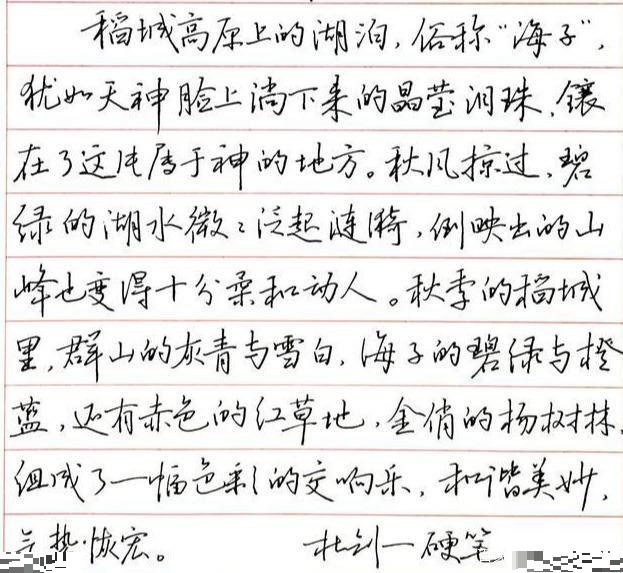 稻城高原上的湖泊，俗称“海子”，
犹如天神脸上淌下来的晶莹泪珠，镶
在了这片属于神的地方。秋风掠过，碧
绿的湖水微微泛起涟漪，倒映出的山
峰也变得十分柔和动人。秋季的稻城
里，群山的灰青与雪白，海子的碧绿与橙
蓝，还有赤色的红草地，金俏的杨树林，
组成了一幅色彩的交响乐，和谐美妙，
气势恢宏。 杜剑一硬笔